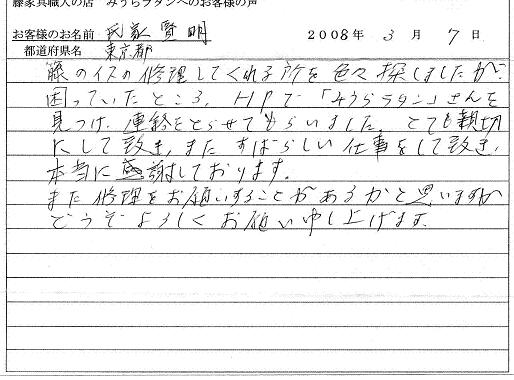 藤家具職人の店 みうらラタンへのお客様の声
お客様のお名前 氏家 賢明 2008年 3月 7日
都道府県名 東京都
籐のイスの修理してくれる所を色々探しましたが、
困っていたところ、HPで「みうらラタン」さんを
見つけ、連絡をとらせてもらいました。とても親切
にして頂き、また すばらしい仕事をして頂き、
本当に感謝しております。
また修理をお願いすることがあるかと思いますが
どうぞよろしくお願い申し上げます。